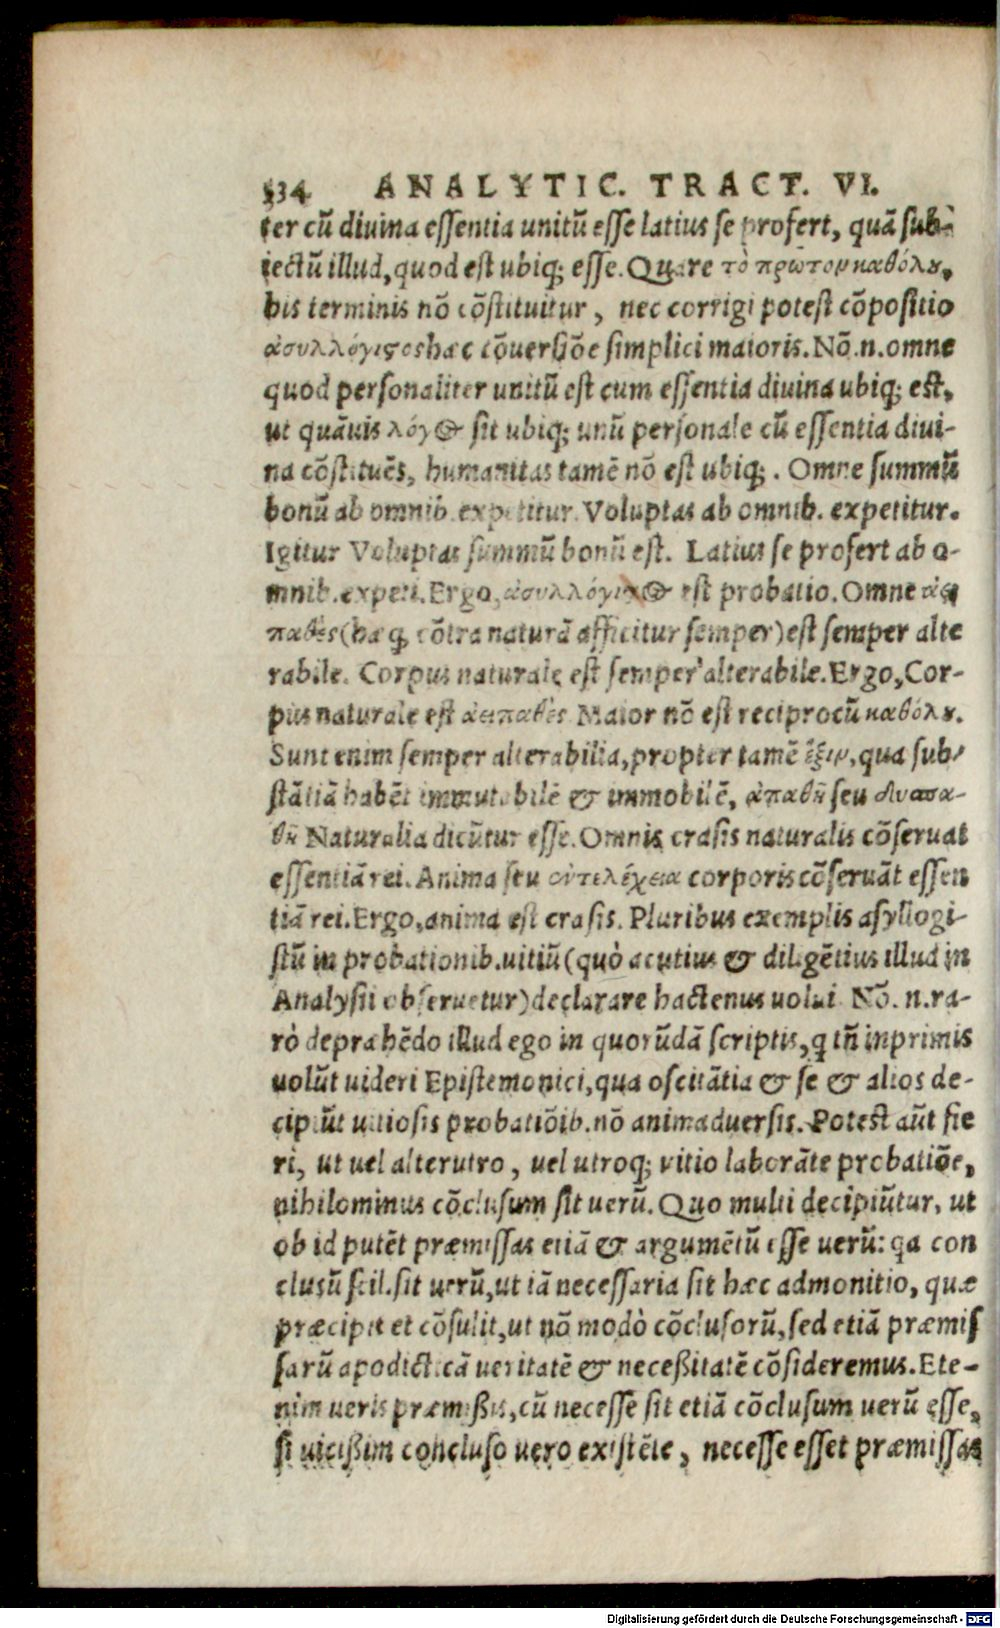 534 ANALYTIC. TRACT. VI.
ter cũ diuina eſſentia unitũ eſſe latius ſe profert, quã ſub-
iectũ illud, quod eſt ubiq; eſſe. Quare τὸ πρῶτον καθόλου,
his terminis nõ cõſtituitur, nec corrigi poteſt cõpoſitio
ἀσυλλόγιςος hæc cõuerſiõe ſimplici maioris. Nõ.n.omne
quod perſonaliter unitũ eſt cum eſſentia diuina ubiq; eſt,
ut quãuis λόγος ſit ubiq; unũ perſonale cũ eſſentia diui-
na cõſtituẽs, humanitas tamẽ nõ eſt ubiq;. Omne ſummũ
bonũ ab omnib. expetitur. Voluptas ab omnib. expetitur.
Igitur Voluptas ſummũ bonũ eſt. Latius ſe profert ab o-
mnib. expeti. Ergo, ἀσυλλόγιςος eſt probatio. Omne ἀει
παθὲς (hæq; cõtra naturã afficitur ſemper) eſt ſemper alte
rabile. Corpus naturale eſt ſemper alterabile. Ergo, Cor-
pus naturale eſt ἀειπαθὲς. Maior nõ eſt reciprocũ καθόλου.
Sunt enim ſemper alterabilia, propter tamẽ ἕξιν, qua ſub-
ſtãtiã habẽt immutabilẽ & immobilẽ, ἀπαθῆ ſeu δυσπα-
θῆ Naturalia dicũtur eſſe. Omnis craſis naturalis cõſeruat
eſſentiã rei. Anima ſeu ἐντελέχεια corporis cõſeruãt eſſen
tiã rei. Ergo, anima eſt craſis. Pluribus exemplis aſyllogi-
ſtũ in probationib. uitiũ (quò acutius & diligẽtius illud in
Analyſi obſeruetur) declarare hactenus uolui. Nõ. n. ra-
rò deprahẽdo illud ego in quorũdã ſcriptis, q tñ inprimis
uolũt uideri Epiſtemonici, qua oſcitãtia & ſe & alios de-
cipiũt uitioſis probatiõib. nõ animaduerſis. Poteſt aũt fie
ri, ut uel alterutro, uel utroq; vitio laborãte probatiõe,
nihilominus cõcluſum ſit uerũ. Quo multi decipiũtur, ut
ob id putẽt præmiſſas etiã & argumẽtũ eſſe uerũ: qa con
cluſũ ſcil. ſit uerũ, ut iã neceſſaria ſit hæc admonitio, quæ
præcipit et cõſulit, ut nõ modò cõcluſorũ, ſed etiã præmiſ
ſarũ apodicticã ueritatẽ & neceßitatẽ cõſideremus. Ete-
nim ueris præmißis, cũ neceſſe ſit etiã cõcluſum uerũ eſſe,
ſi uicißim concluſo uero exiſtẽte, neceſſe eſſet præmiſſas
Digitalisierung gefördert durch die Deutsche Forschungsgemeinschaft - DFG